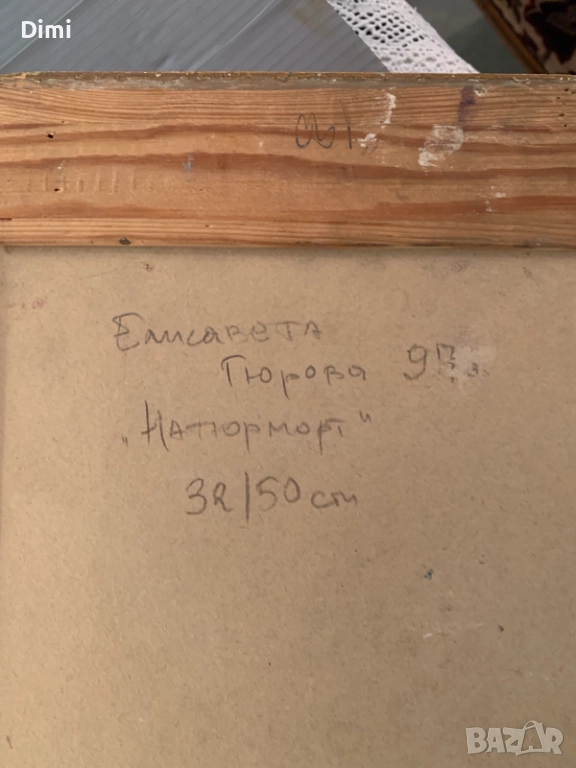 Dimi
Елисавета
Гюрова 97г.
„Натюрморт"
32/50 cm
BAZAR